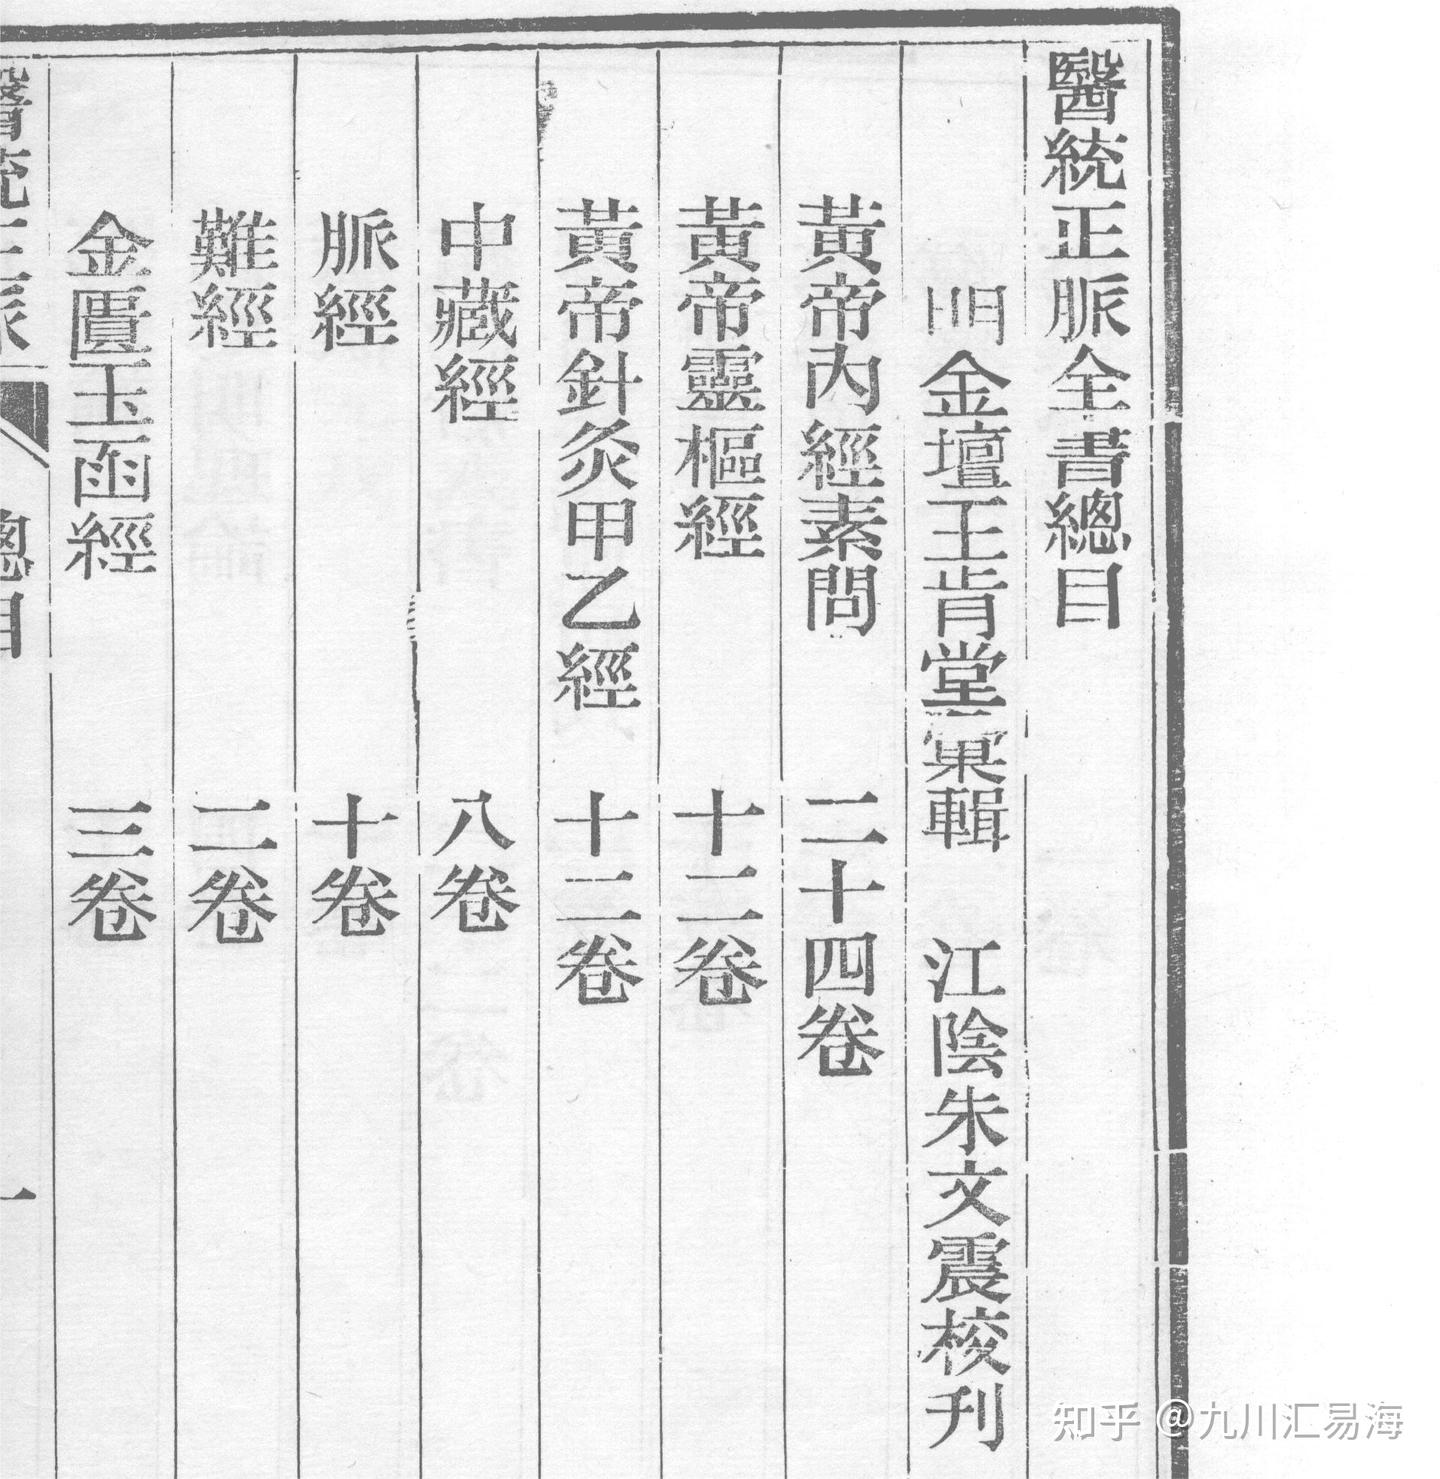 醫統正脈全書總目
明金壇王肯堂彙輯 江陰朱文震校刋
黃帝內經素問 二十四卷
黃帝靈樞經 十二卷
黃帝針灸甲乙經 十二卷
中藏經 八卷
脈經 十卷
難經 二卷
金匱玉函經 三卷
醫統正脈 總目 一
知乎 @九川汇易海